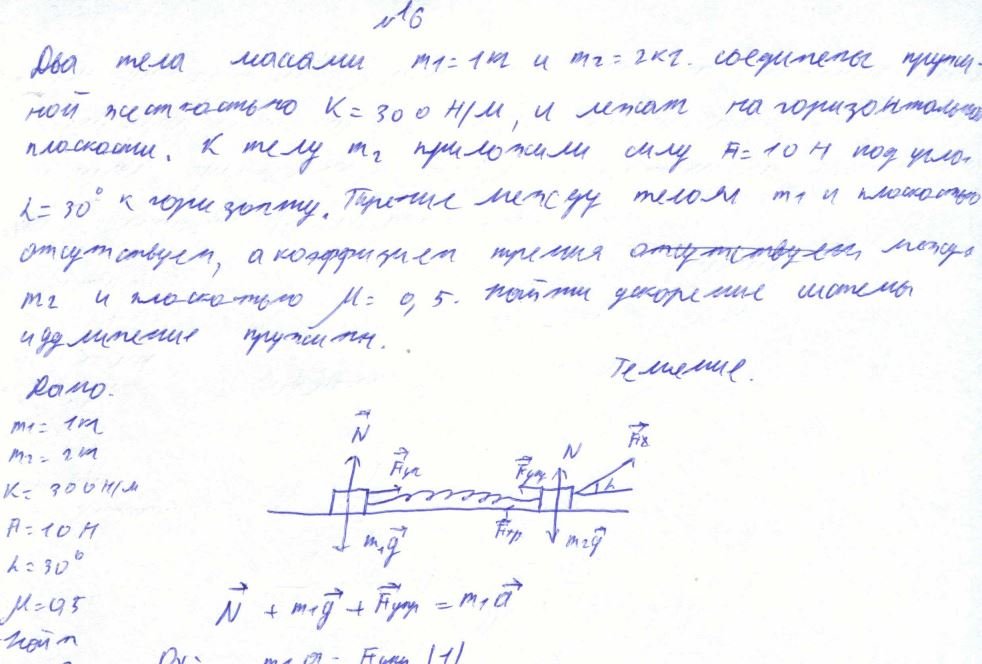 №16
Два тела масами m1=1кг и m2=2кг. соединены пружи-
ной жесткостью K=300 Н/м, и лежат на горизонтальной
плоскости. К телу m2 приложили силу F=10 Н под углом
α=30° к горизонту. Трение между телом m1 и плоскостью
отсутствует, а коэффициент трения отсутствует между
m2 и плоскостью μ=0,5. Найти ускорение системы
и удлинение пружины.
Решение.
Дано:
m1=1кг
m2=2кг
K=300Н/м
F=10Н
α=30°
μ=0,5
Найти
N Fуп Fупр N F α
m1g Fтр m2g
N + m1g + Fупр = m1a
Ox: m1a = Fупр (1)